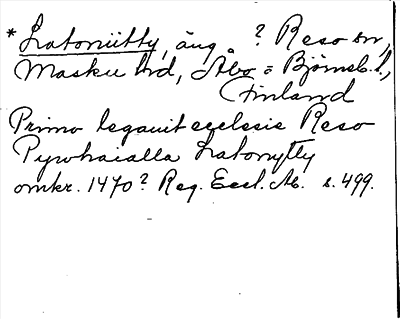 * Latoniitty, äng ? Reso sn,
Masku hd, Åbo = Björneb. l.,
Finland
Primo legauit ecclesie Reso
Pywhaialla Latonytty
omkr. 1470? Reg. Eccl. Ab. s. 499.